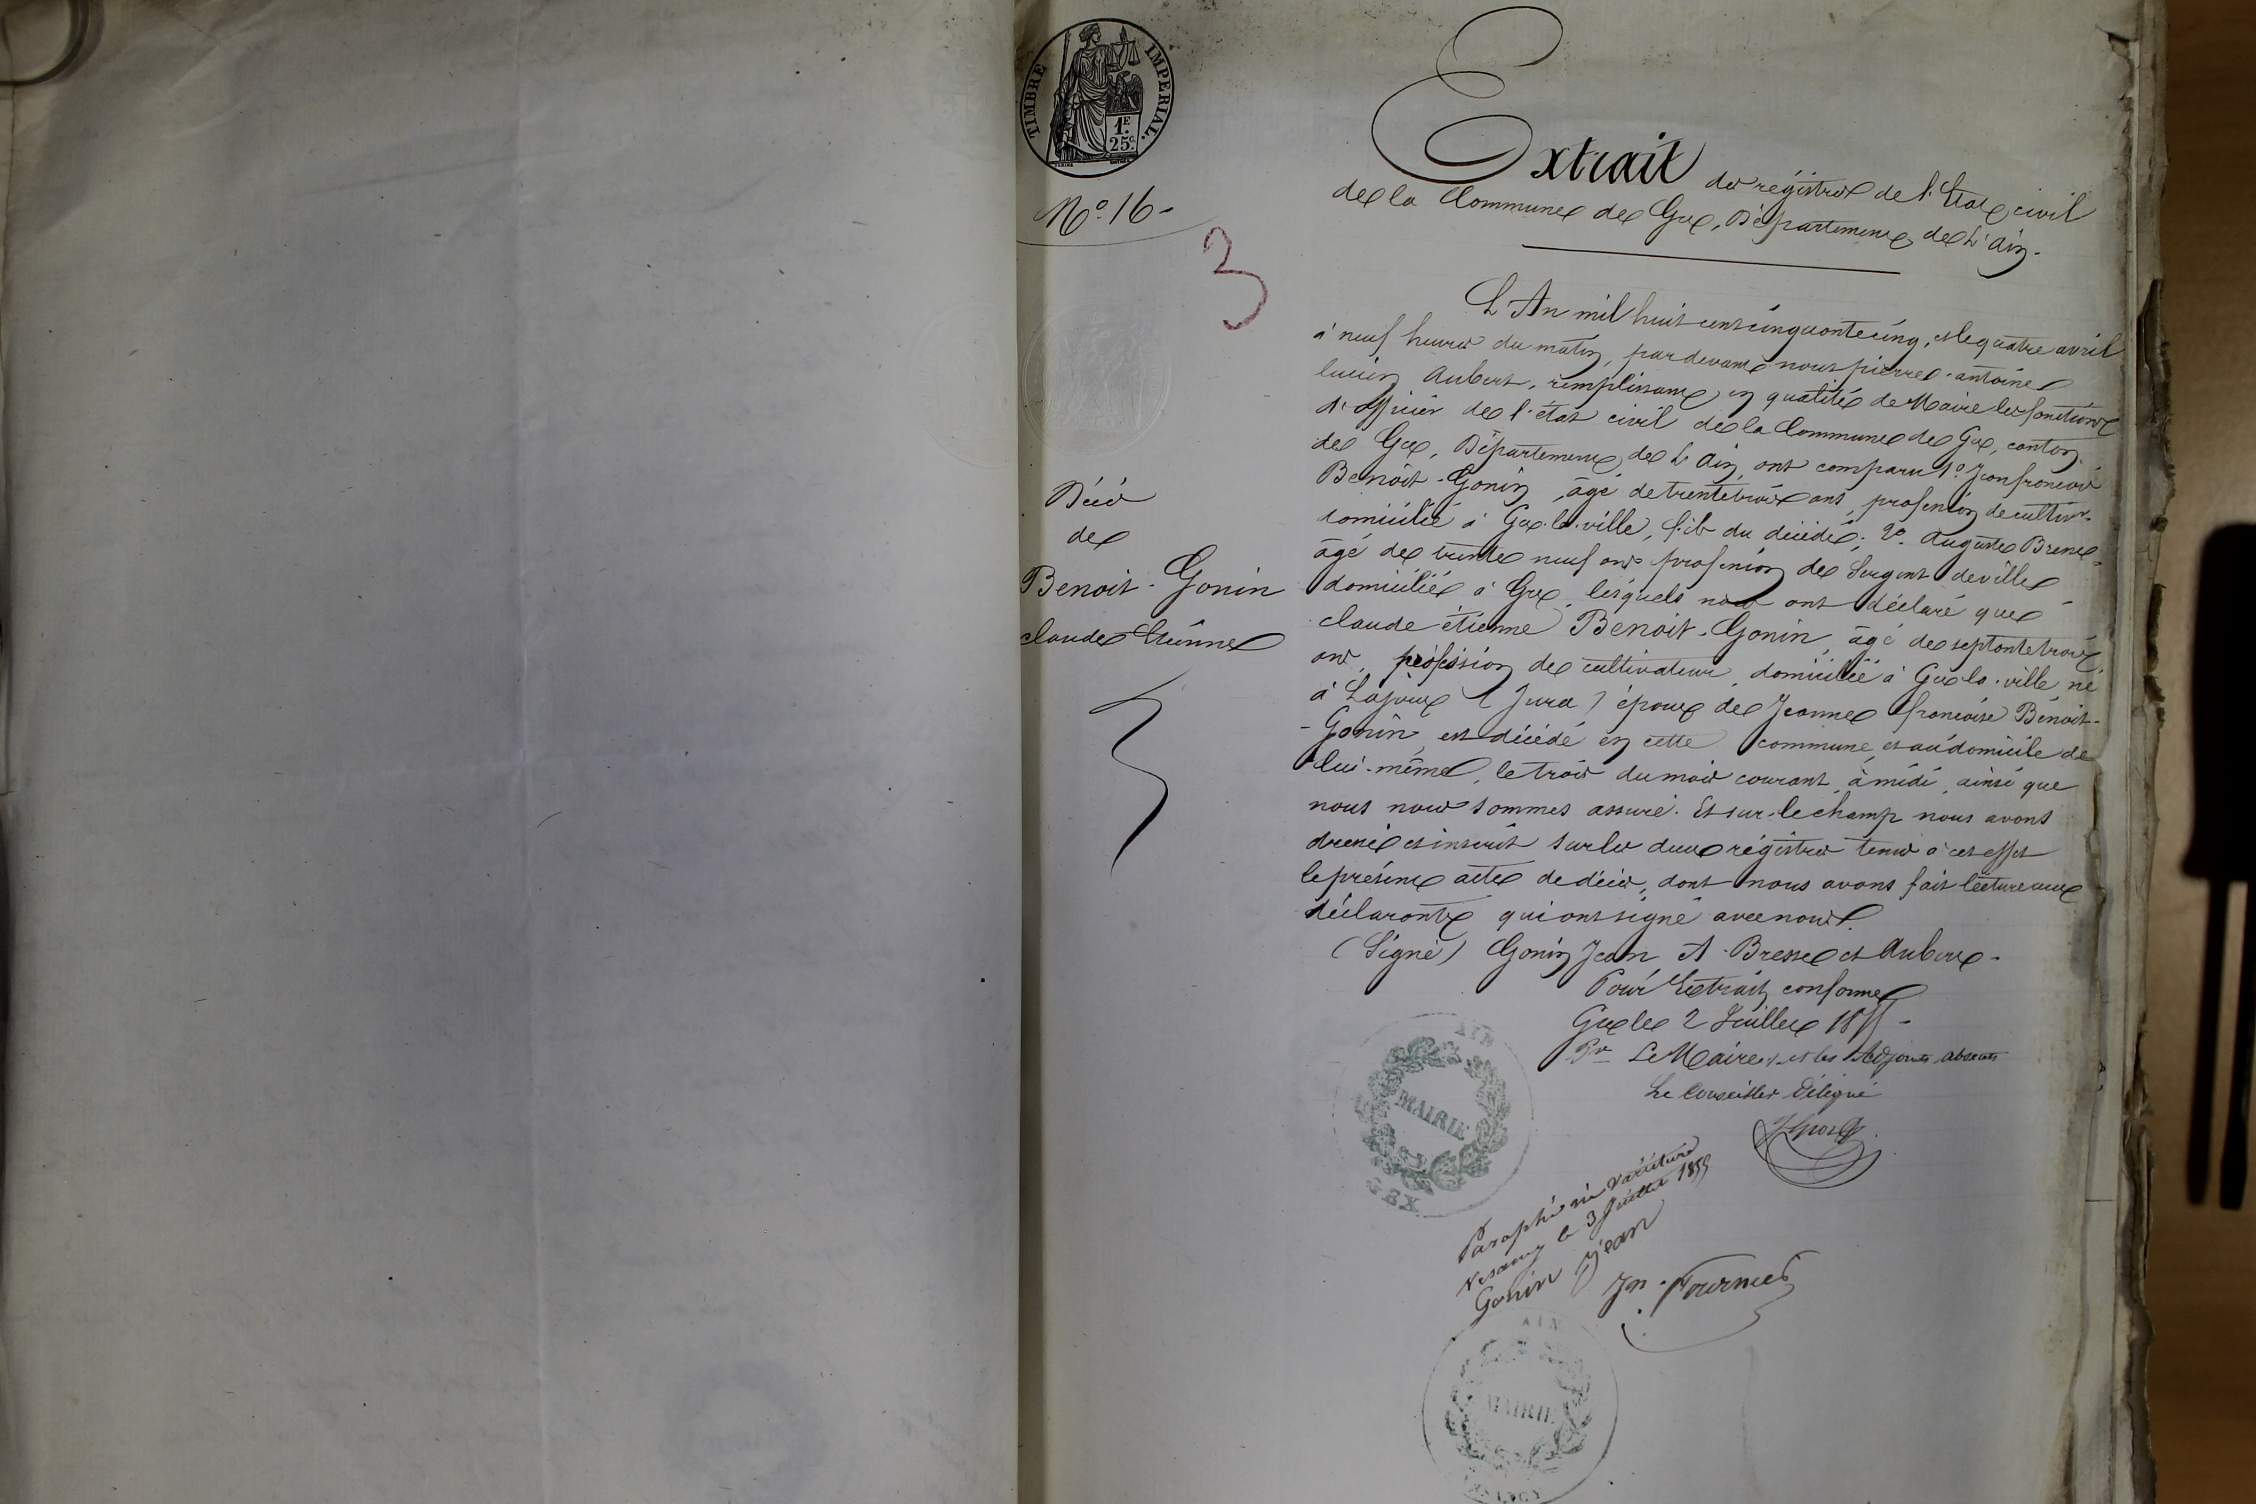 TIMBRE IMPERIAL.
1F.
25c.
No. 16-
3
Extrait des régistres de l'État civil
de la Commune de Gex, Département de L'ain.
L'An mil huit cent cinquante cinq, et le quatre avril
à neuf heures du matin, pardevant nous pierre-antoine
lucien Aubert, remplissant en qualité de Maire les fonctions
d'officier de l'état civil de la Commune de Gex, canton
de Gex, Département de L'ain, ont comparu 1o. Jean françois
Benoit-Gonin, âgé de trente trois ans, profession de cultivr.
domicilié à Gex-la-ville, fils du décédé; 2o. Auguste Bresse,
âgé de trente neuf ans profession de Sergent de ville
domicilié à Gex, lesquels nous ont déclaré que
claude étienne Benoit-Gonin, âgé de septante trois
ans, profession de cultivateur, domicilié à Gex la-ville, né
à Lajoux (Jura) époux de Jeanne françoise Bénoit-
-Gonin, est décédé en cette commune, et au domicile de
lui-même, le trois du mois courant, à midi, ainsi que
nous nous sommes assuré. Et sur-le champ nous avons
dressé et inscrit sur les deux régistres tenus à cet effet
le présent acte de décès, dont nous avons fait lecture aux
déclarants qui ont signé avec nous.
(Signé) Gonin Jean A. Bresse et Aubert-
Décès
de
Benoit-Gonin
claude Etienne
Pour Extrait conforme
Gex le 2 Juillet 1855-
Pr. Le Maire, et les Adjoints absents
Le Conseiller Délégué
AIN
MAIRIE
GEX
Paraphé ne varietur
Vesancy le 3 Juillet 1855
Gonin Jean
Jn. Fournier
AIN
MAIRIE